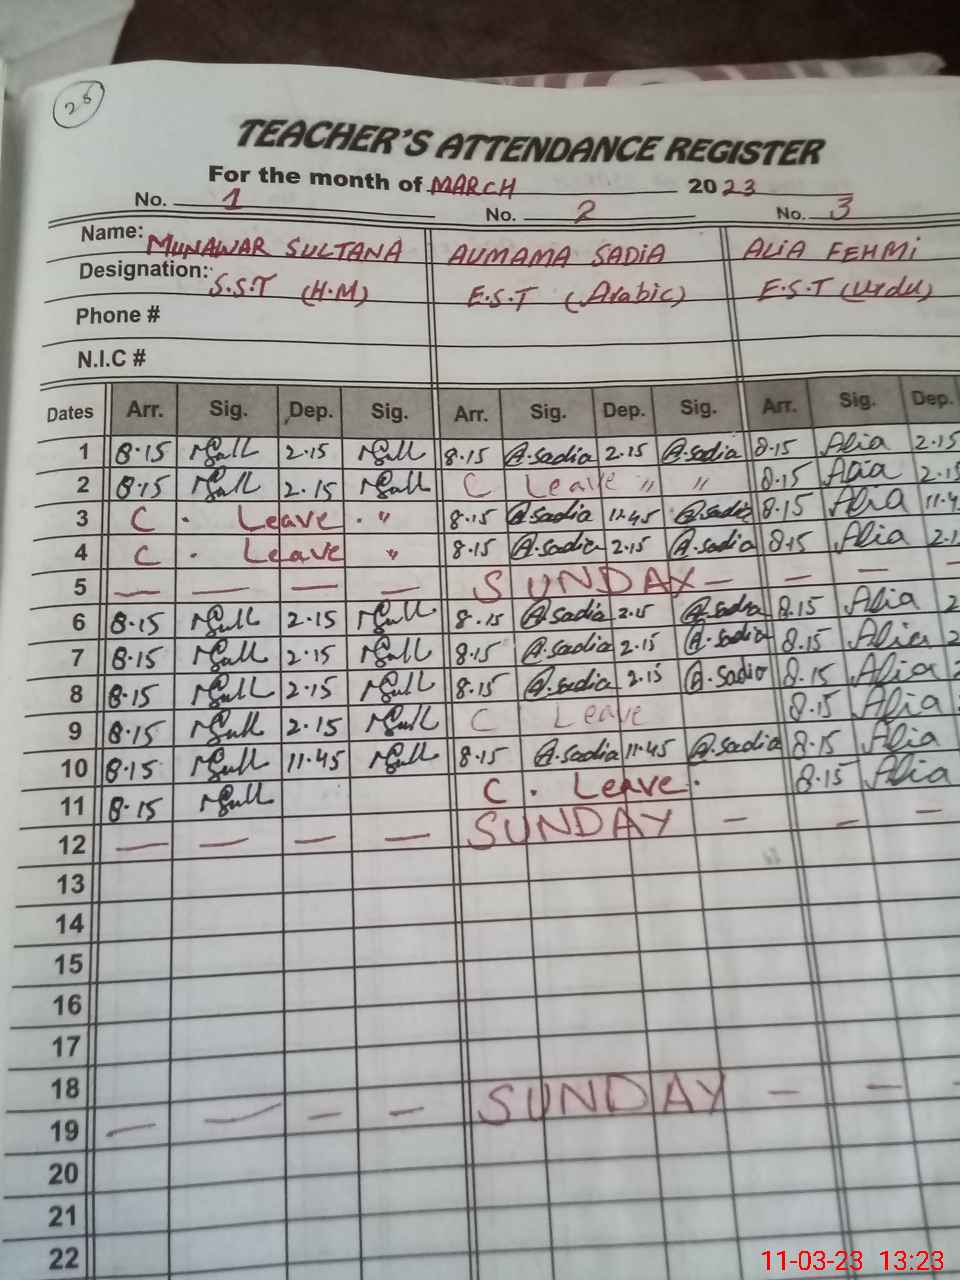 28
TEACHER'S ATTENDANCE REGISTER
For the month of MARCH 2023
No. 1 No. 2 No. 3
Name: MUNAWAR SULTANA AUMAMA SADIA ALIA FEHMI
Designation: S.S.T (H.M) E.S.T (Arabic) E.S.T (Urdu)
Phone #
N.I.C #
Dates Arr. Sig. Dep. Sig. Arr. Sig. Dep. Sig. Arr. Sig. Dep.
1 8.15 2.15 8.15 A.sadia 2.15 A.sadia 8.15 Alia 2.15
2 8.15 2.15 C Leave " " 8.15 Alia 2.15
3 C . Leave . " 8.15 A.sadia 11.45 A.sadia 8.15 Alia 11.4
4 C . Leave " 8.15 A.sadia 2.15 A.sadia 8.15 Alia 2.1
5 — — — — SUNDAY — — — —
6 8.15 2.15 8.15 A.sadia 2.15 A.sadia 8.15 Alia 2
7 8.15 2.15 8.15 A.sadia 2.15 A.sadia 8.15 Alia 2
8 8.15 2.15 8.15 A.sadia 2.15 A.sadia 8.15 Alia 2
9 8.15 2.15 C Leave 8.15 Alia
10 8.15 11.45 8.15 A.sadia 11.45 A.sadia 8.15 Alia
11 8.15 C . Leave . 8.15 Alia
12 — — — — SUNDAY — — —
13
14
15
16
17
18
19 — — — — SUNDAY — — -
20
21
22
11-03-23 13:23